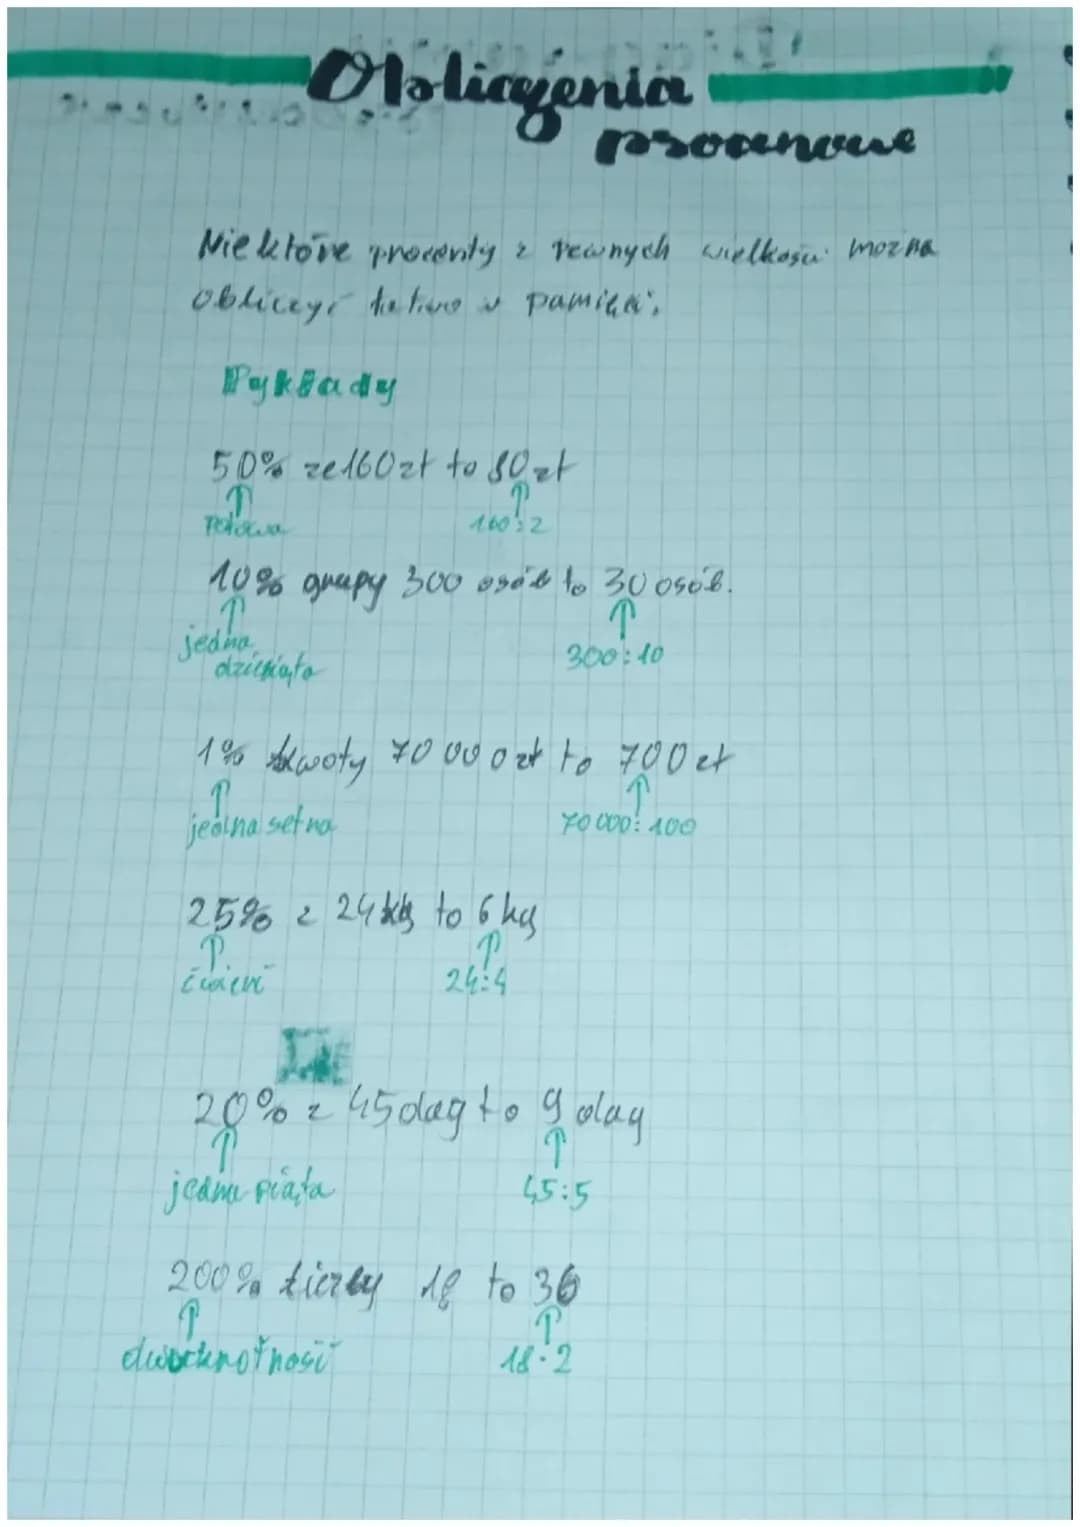 Obliczenia
procenowe
Niektóre procenty z pewnych wielkości można
obliczyć łatwo w pamięci;
Pykłady
50% ze 160 zł to 80 zł
Połowa 160:2
10% grupy 300 osób to 30 osób.
jedna 300:10
dziesiąta
1% kwoty 70 000 zł to 700 zł
jedna setna 70 000:100
25% z 24 kg to 6 kg
ćwierć 24:4
20% z 45 dag to 9 dag
jedna piąta 45:5
200% liczby 18 to 36
dwukrotność 18·2